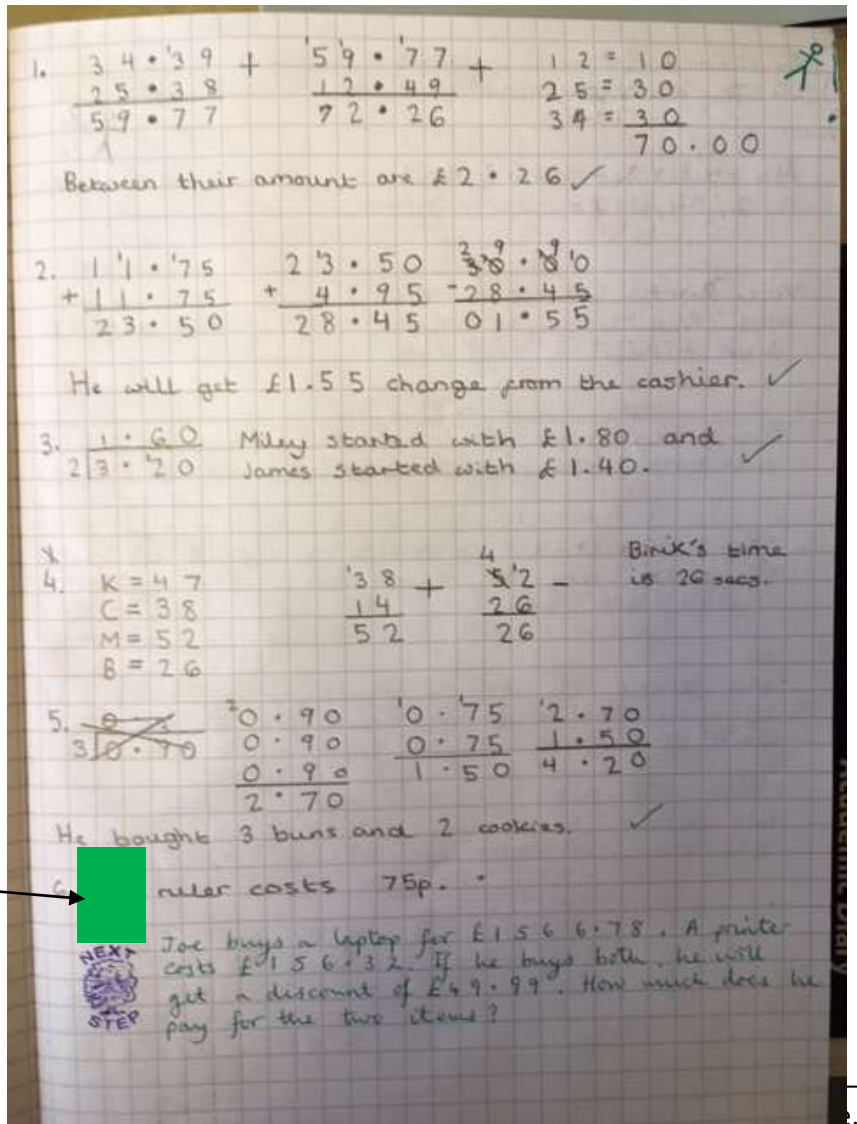 1. 34.'39 + '5'9.'77 + 12 = 10
25.38 12.49 25 = 30
59.77 72.26 34 = 30
70.00
Between their amount are £2.26 ✓
2. 1'1.'75 2'3.50 30.00
+ 11.75 + 4.95 - 28.45
23.50 28.45 01.55
He will get £1.55 change from the cashier. ✓
3. 1.60 Miley started with £1.80 and ✓
2 3.'20 James started with £1.40.
4. K = 47 '38 + 4 5'2 - Binik's time
C = 38 14 26 is 26 secs.
M = 52 52 26
B = 26
5. 0.90 '0.'75 '2.70
3 0.90 0.90 0.75 1.50
0.90 1.50 4.20
2.70
He bought 3 buns and 2 cookies. ✓
6. ruler costs 75p.
NEXT STEP
Joe buys a laptop for £1566.78. A printer
costs £156.32. If he buys both, he will
get a discount of £49.99. How much does he
pay for the two items?
Academic Diary
e.